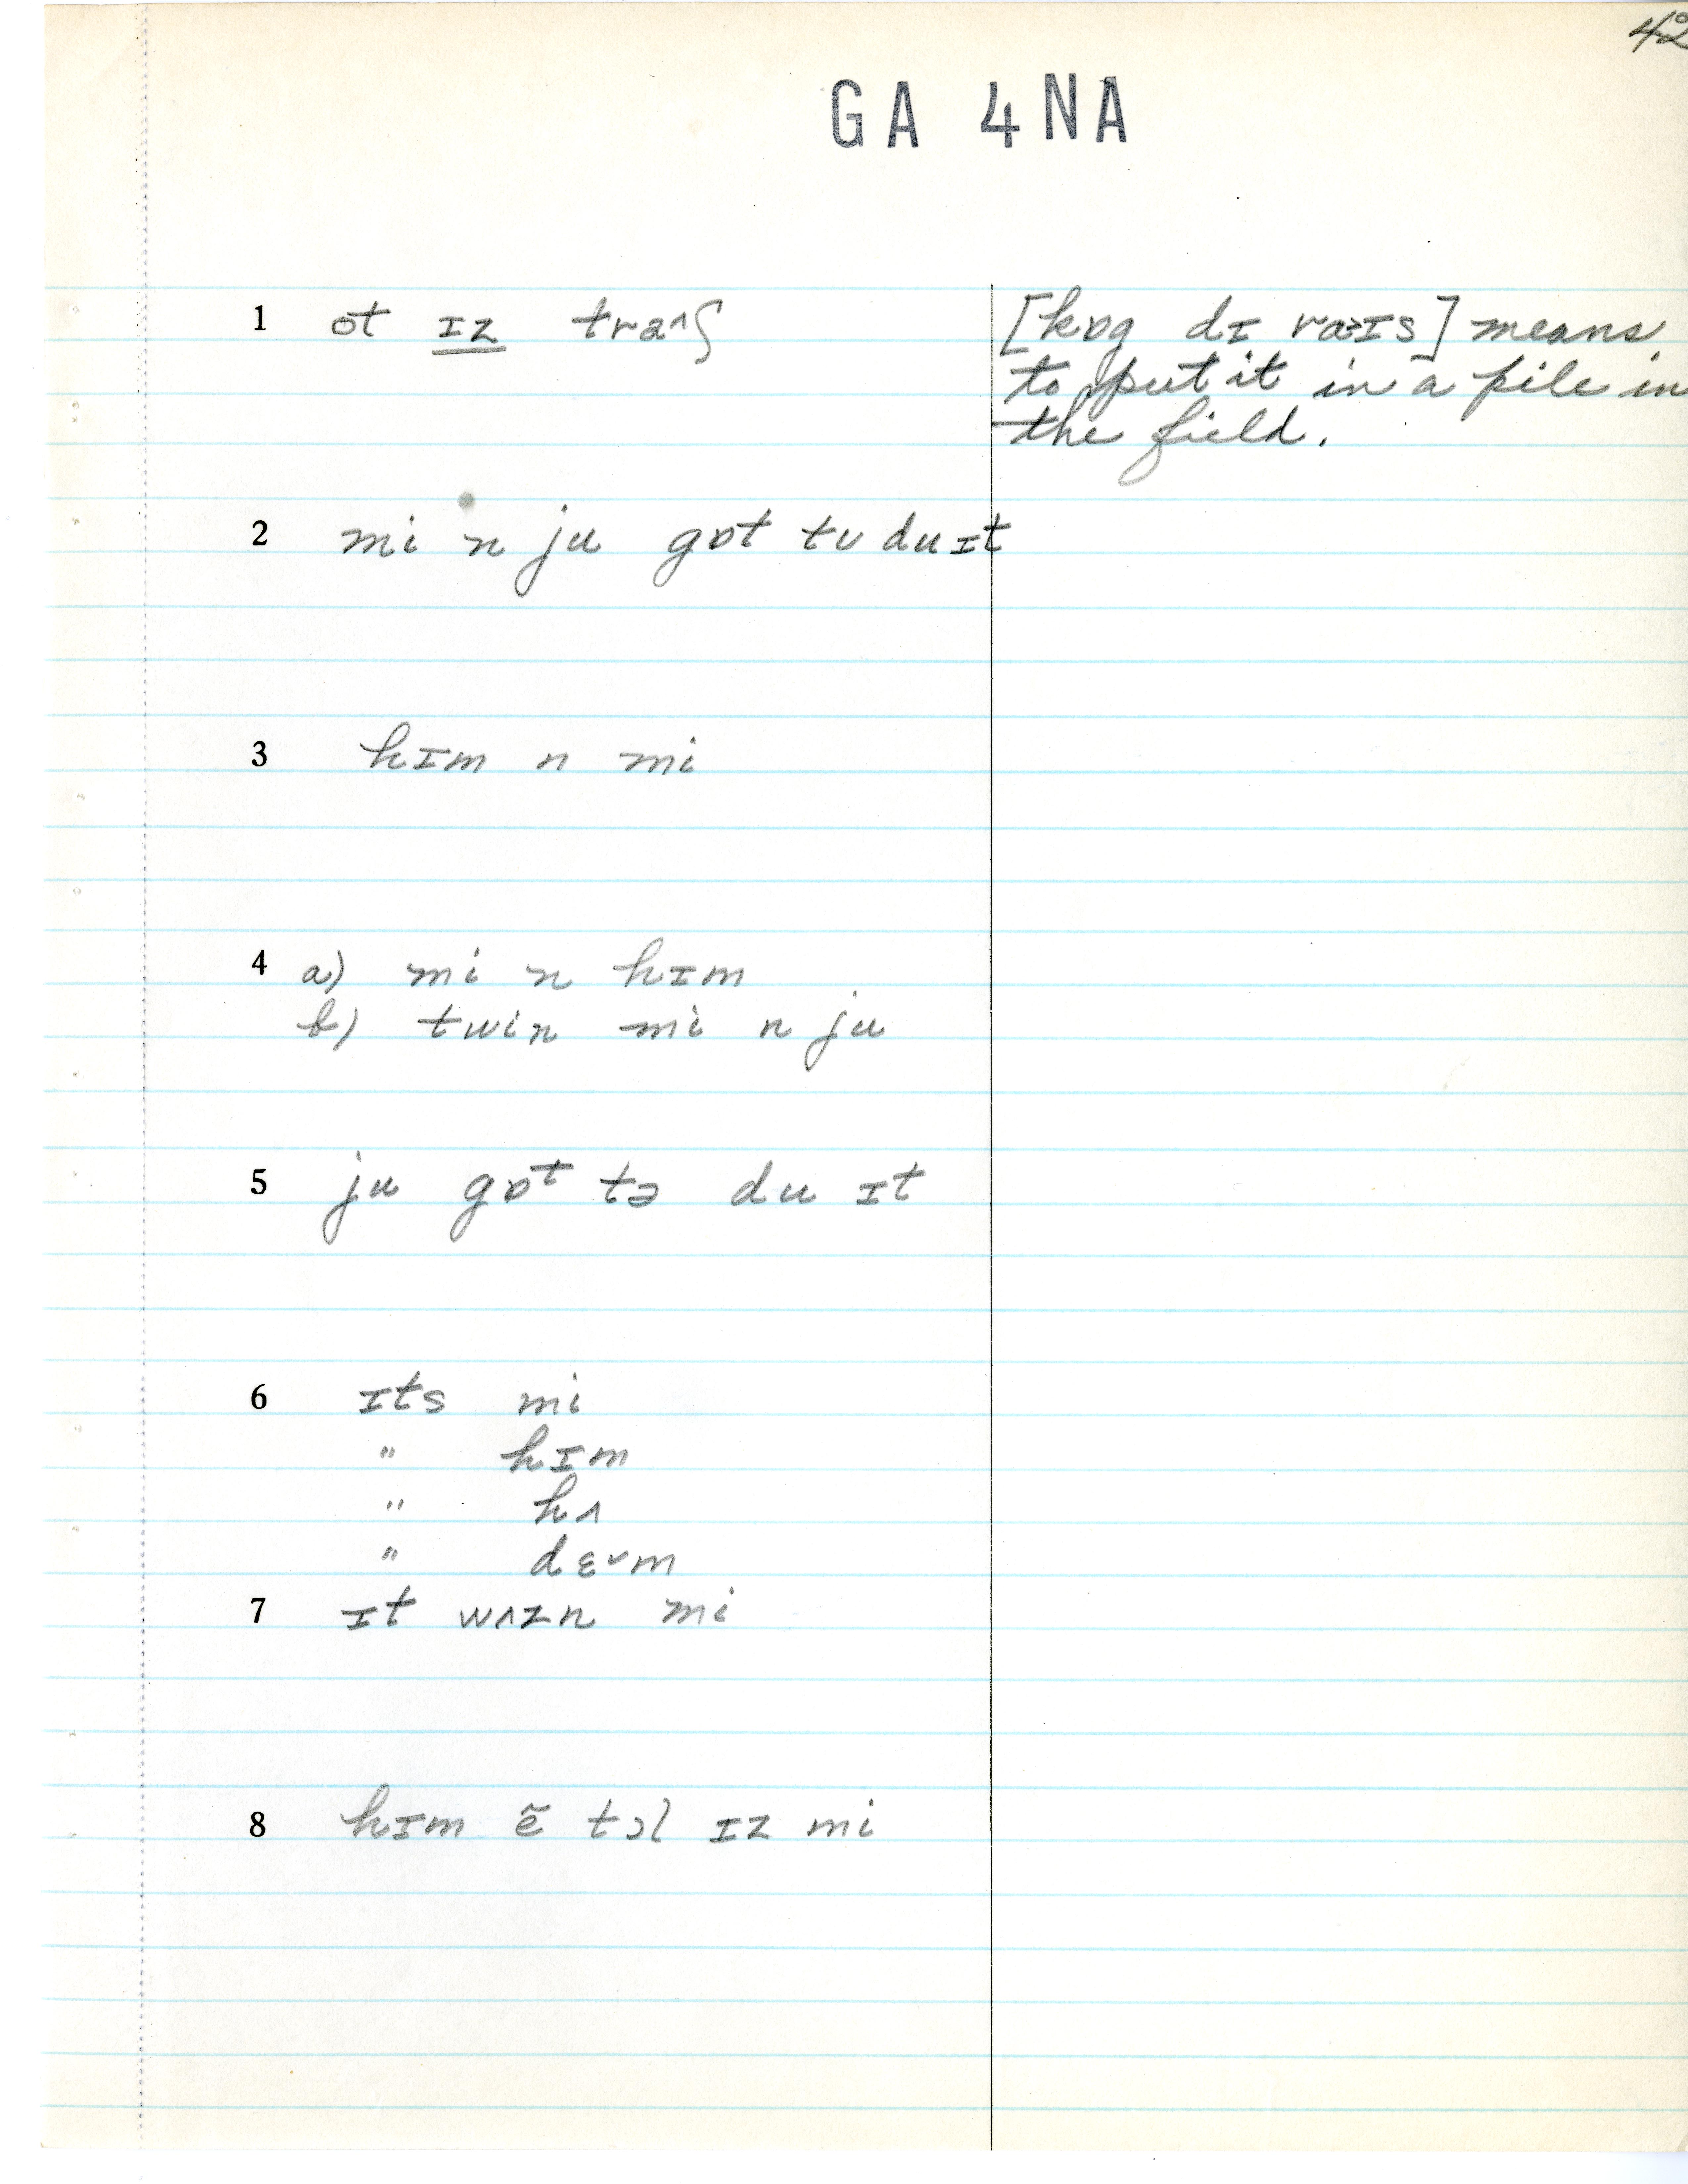 42
GA 4NA
1 ot ɪz tra^ʃ
[kɒg dɪ ra>ɪs] means
to put it in a pile in
the field.
2 mi n ju gɒt tʊ du ɪt
3 hɪm n mi
4 a) mi n hɪm
b) twin mi n ju
5 ju gɒt tə du ɪt
6 ɪts mi
" hɪm
" hʌ
" dɛˇm
7 ɪt wʌzn mi
8 hɪm ẽ tɔl ɪz mi